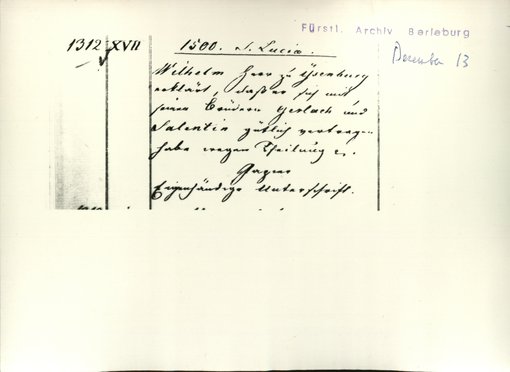 Fürstl. Archiv Berleburg
Dezember 13
1312 XVII
1500. S. Lucia.
Wilhelm Herr zu Ysenburg
erklärt, daß er sich mit
seinen Brüdern Gerlach und
Salentin gütlich vertragen
habe wegen Theilung
Papier
Eigenhändige Unterschrift.